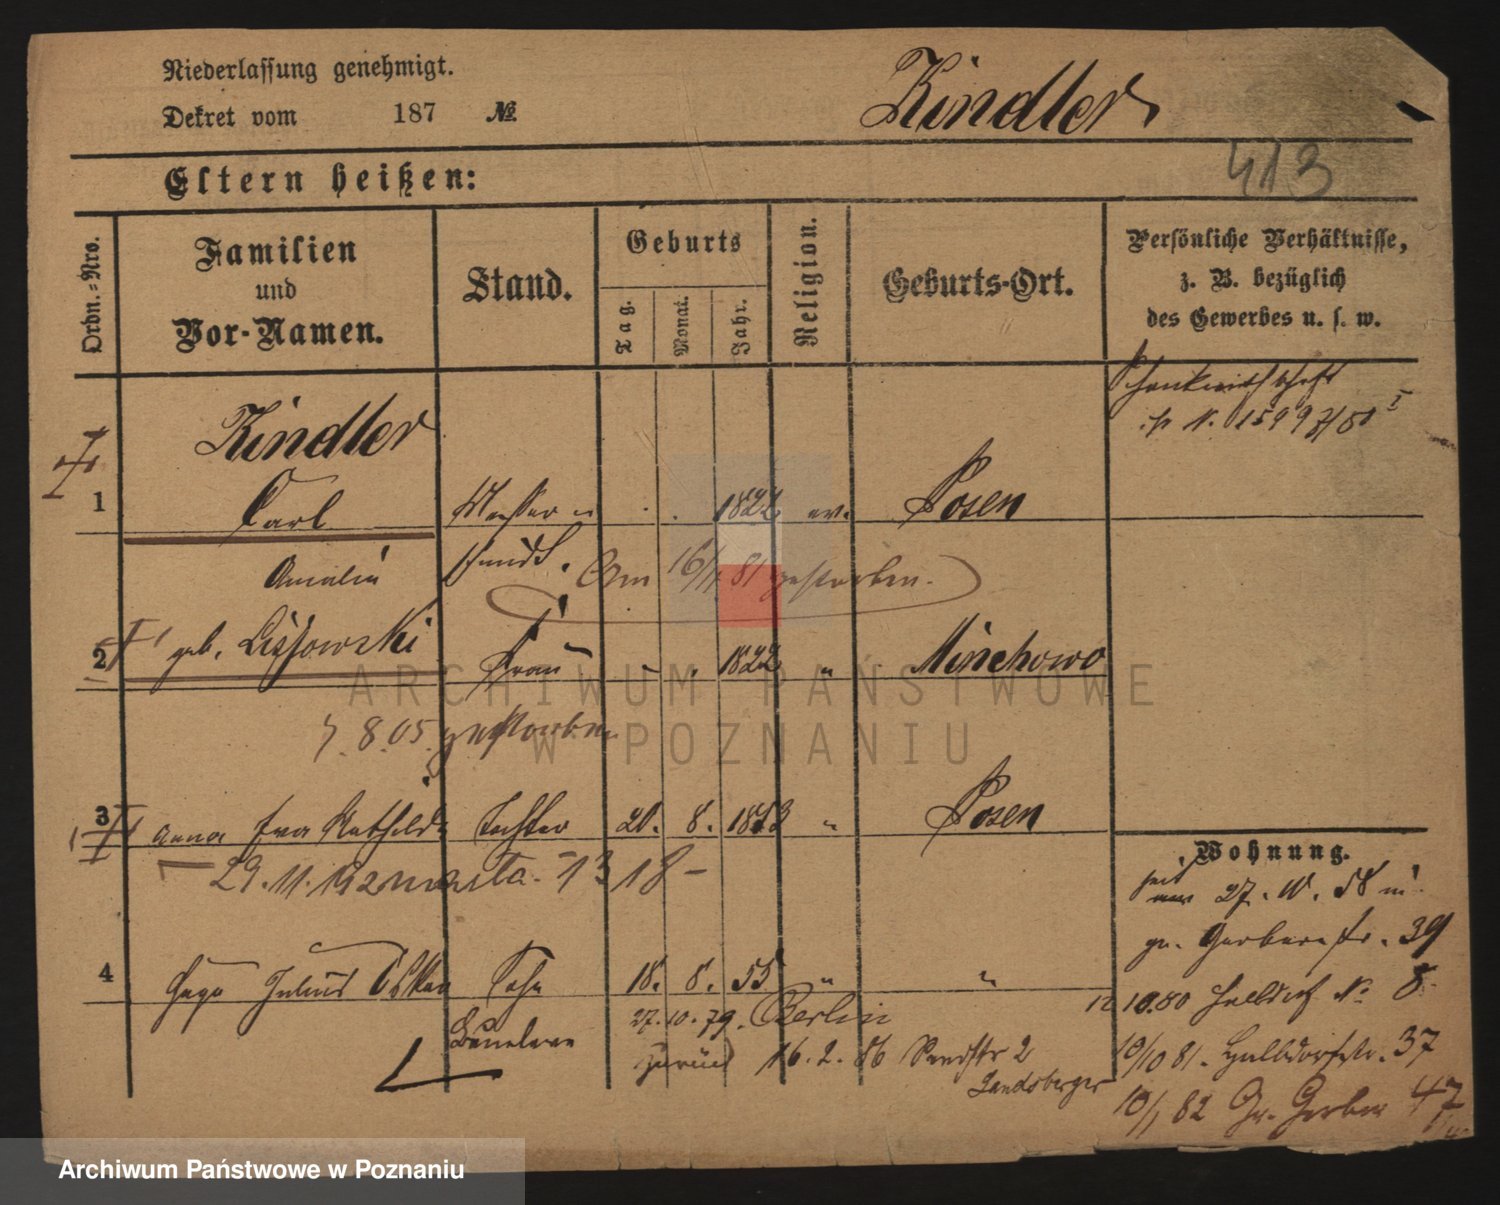 Niederlassung genehmigt.
Dekret vom 187 №
Kindler
413
Eltern heißen:
Ordn.-Nro.
Familien und Vor-Namen.
Stand.
Geburts
Tag.
Monat.
Jahr.
Religion.
Geburts-Ort.
Persönliche Verhältnisse,
z. B. bezüglich
des Gewerbes u. s. w.
Schankwirthschaft
N. 1599
Kindler
1 Carl 1822 ev. Posen
Amalie
Am 16/11 81 gestorben.
2 geb. Lissowski Frau 1822 " Minchowo
7.8.05. gestorben
3 Anna Eva Mathilde Tochter 20. 8. " Posen
29.11.
4 Hugo Julius Oskar Sohn 18. 8. 55 " "
27.10.79. Berlin
zurück 16.2.86 2
Landsberger
Wohnung.
seit 27. 58 in
gr. Gerberstr. 39
10.80 Halbdorf No 8.
10/10 81. Halbdorfstr. 37
10/1 82 Gr. Gerber 47
ARCHIWUM PAŃSTWOWE
W POZNANIU
Archiwum Państwowe w Poznaniu